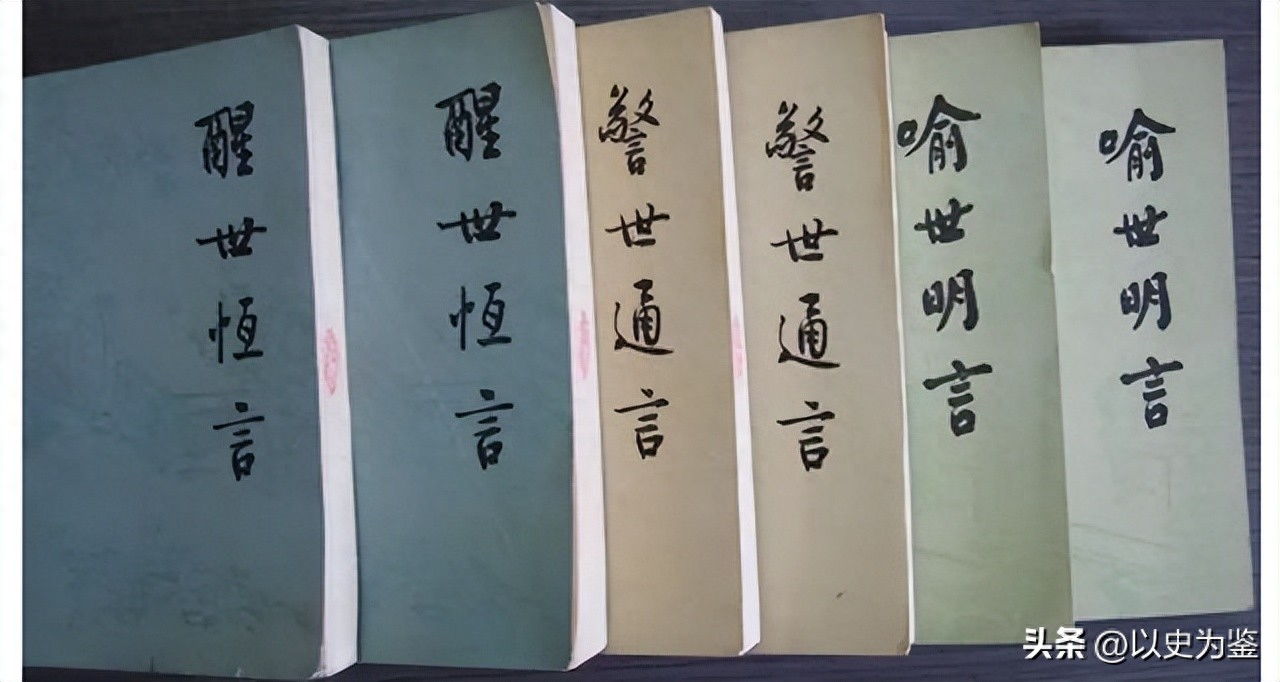 醒世恆言
醒世恆言
警世通言
警世通言
喻世明言
喻世明言
头条 @以史为鉴